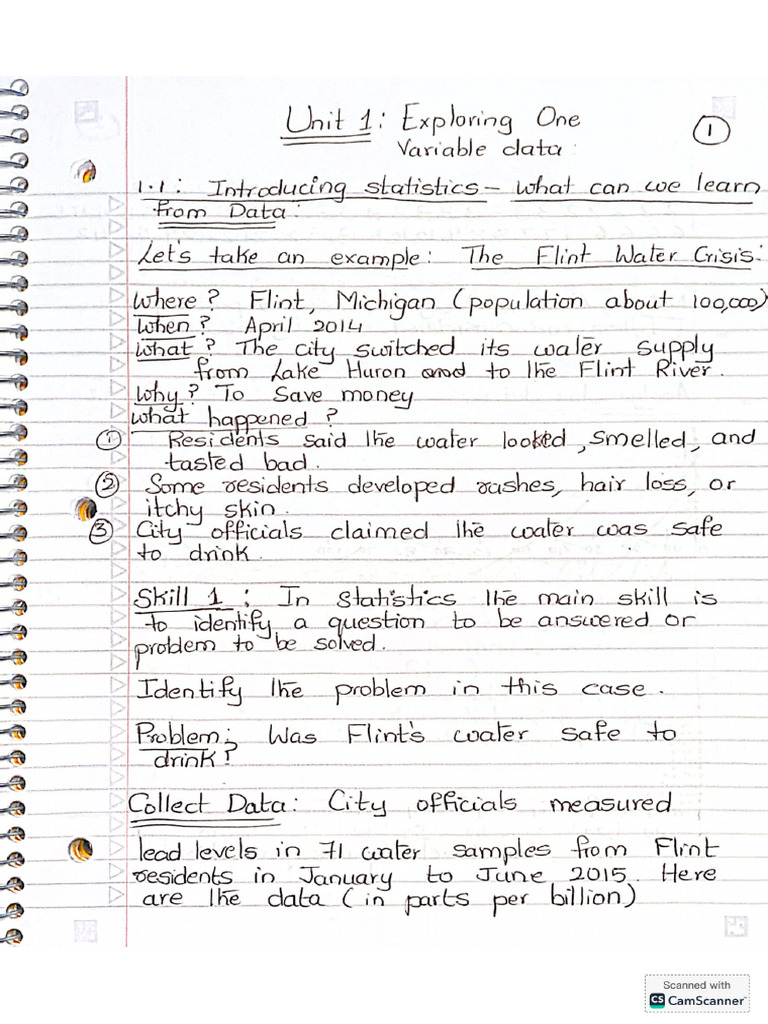 Unit 1: Exploring One
①
Variable data:
1.1: Introducing statistics - what can we learn
from Data:
Let's take an example: The Flint Water Crisis:
Where? Flint, Michigan (population about 100,000)
When? April 2014
What? The city switched its water supply
from Lake Huron and to the Flint River.
Why? To Save money
What happened?
① Residents said the water looked, smelled, and
tasted bad.
② Some residents developed rashes, hair loss, or
itchy skin.
③ City officials claimed the water was safe
to drink.
Skill 1: In Statistics the main skill is
to identify a question to be answered or
problem to be solved.
Identify the problem in this case.
Problem: Was Flint's water safe to
drink?
Collect Data: City officials measured
lead levels in 71 water samples from Flint
residents in January to June 2015. Here
are the data (in parts per billion)
Scanned with
CS CamScanner